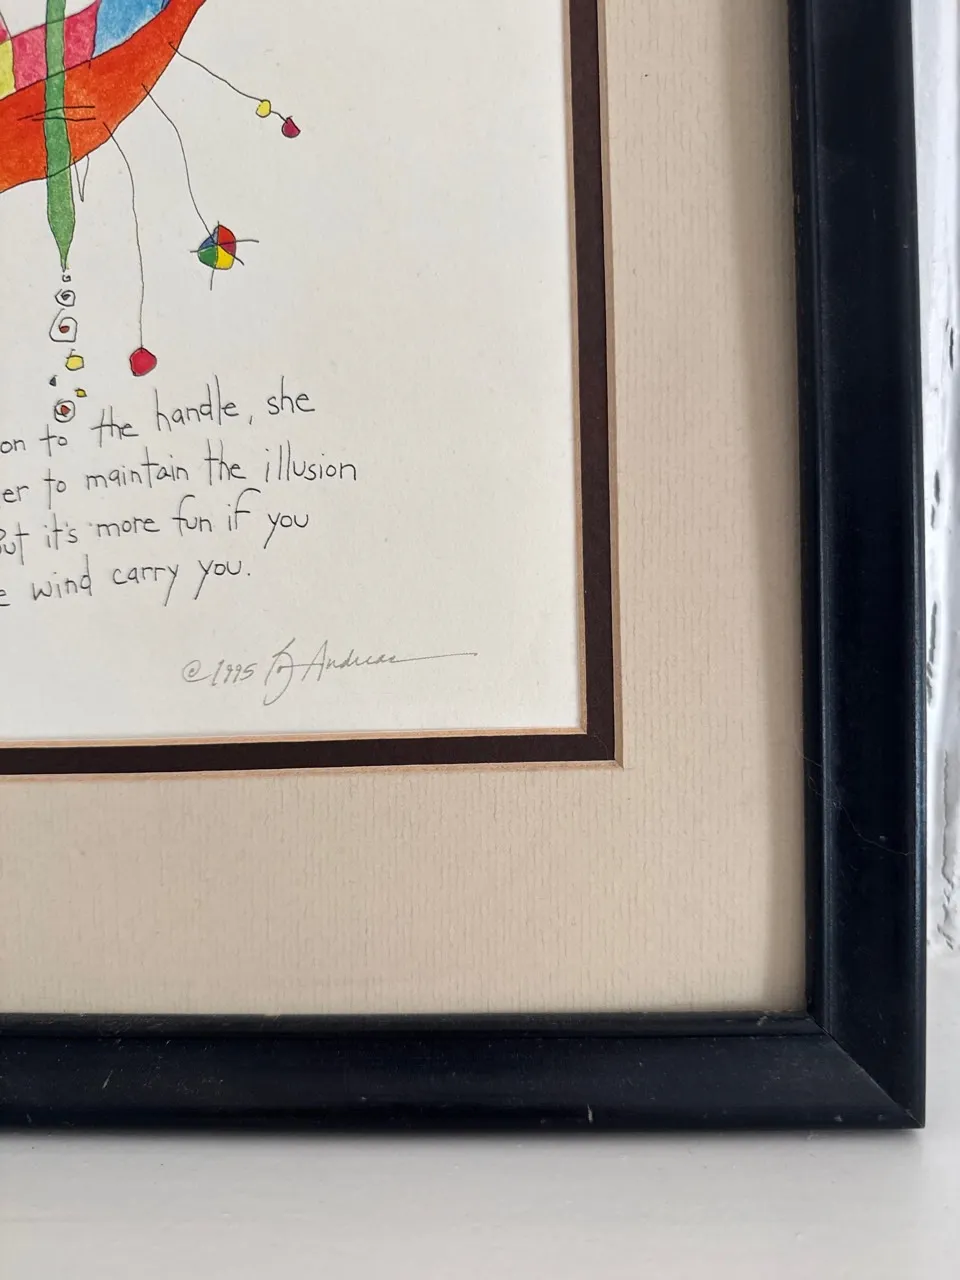 on to the handle, she
er to maintain the illusion
But it's more fun if you
e wind carry you.
©1995 Andreas